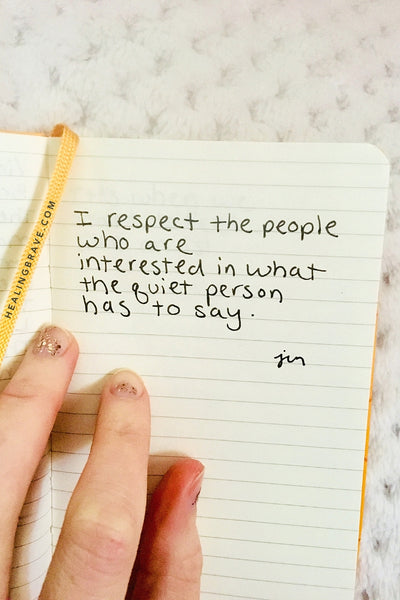 I respect the people
who are
interested in what
the quiet person
has to say.
jen
HEALINGBRAVE.COM